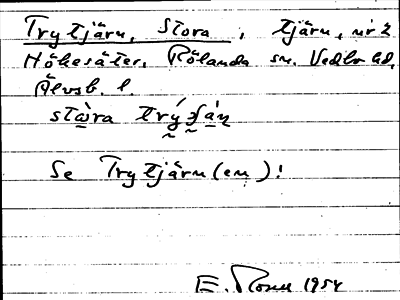 Trytjärn, Stora, tjärn, nr 2
Hökesäter, Rölanda sn. Vedbo hd,
Älvsb. l.
Se Trytjärn (en)!
E. 1954